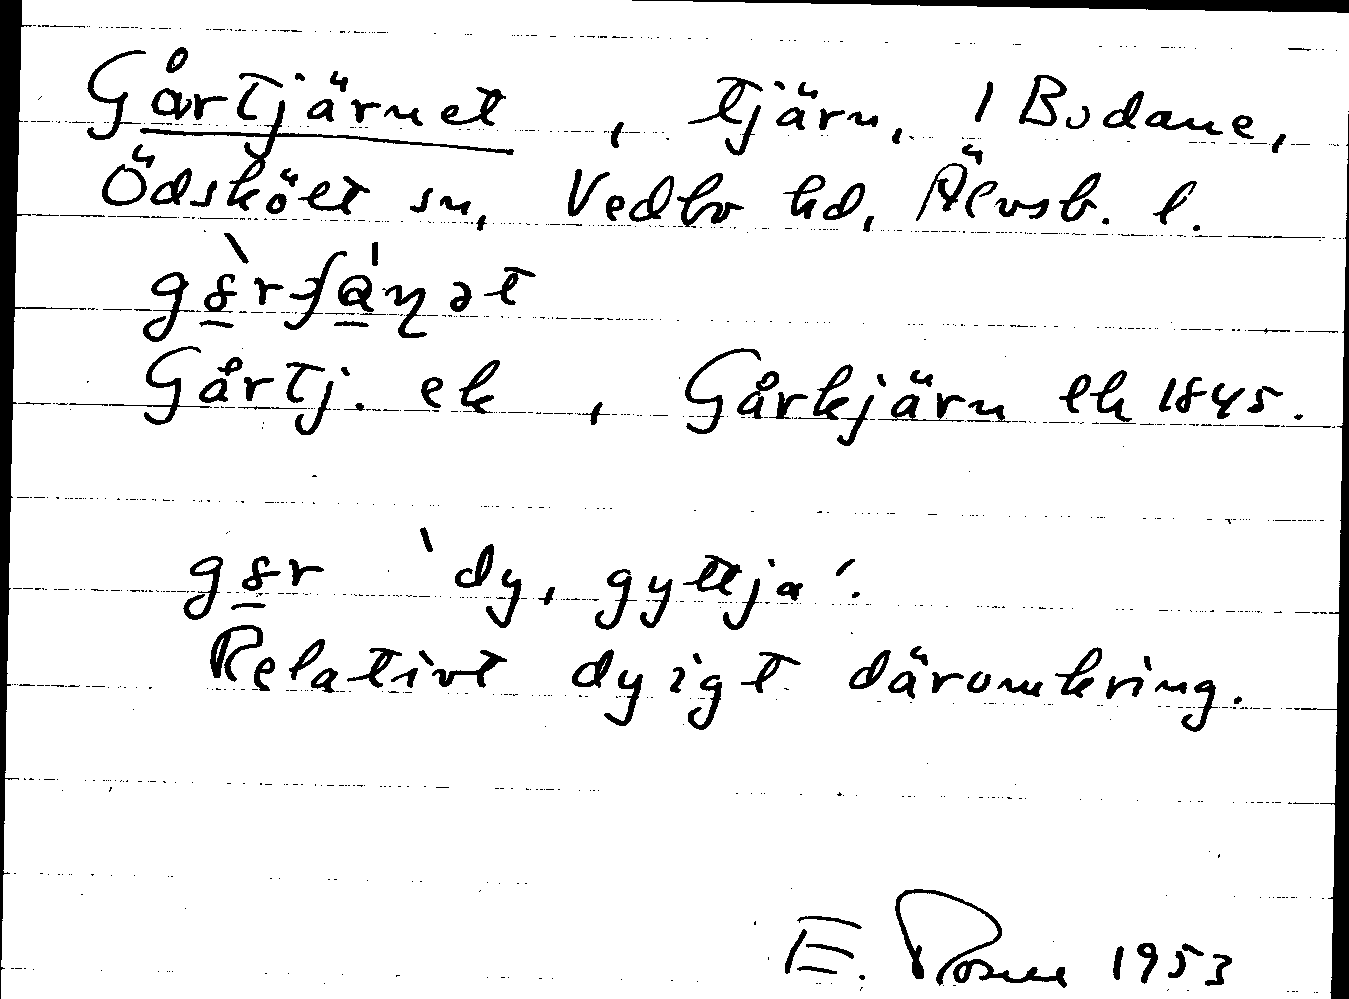 Gårtjärnet, tjärn, 1 Bodane,
Ödskölt sn, Vedbo hd, Älvsb. l.
Gårtj. ek, Gårkjärn lk 1845.
'dy, gyttja'.
Relativt dyigt däromkring.
E. 1953